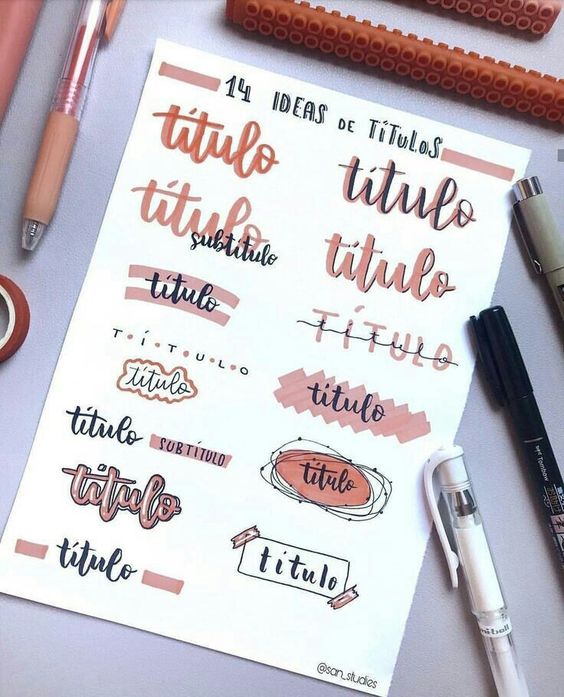 14 IDEAS DE TÍTULOS
título
título
título
subtítulo
título
título
TÍTULO
título
T·Í·T·U·L·O
título
título
título
SUBTÍTULO
título
título
título
título
@san_studies
Tombow